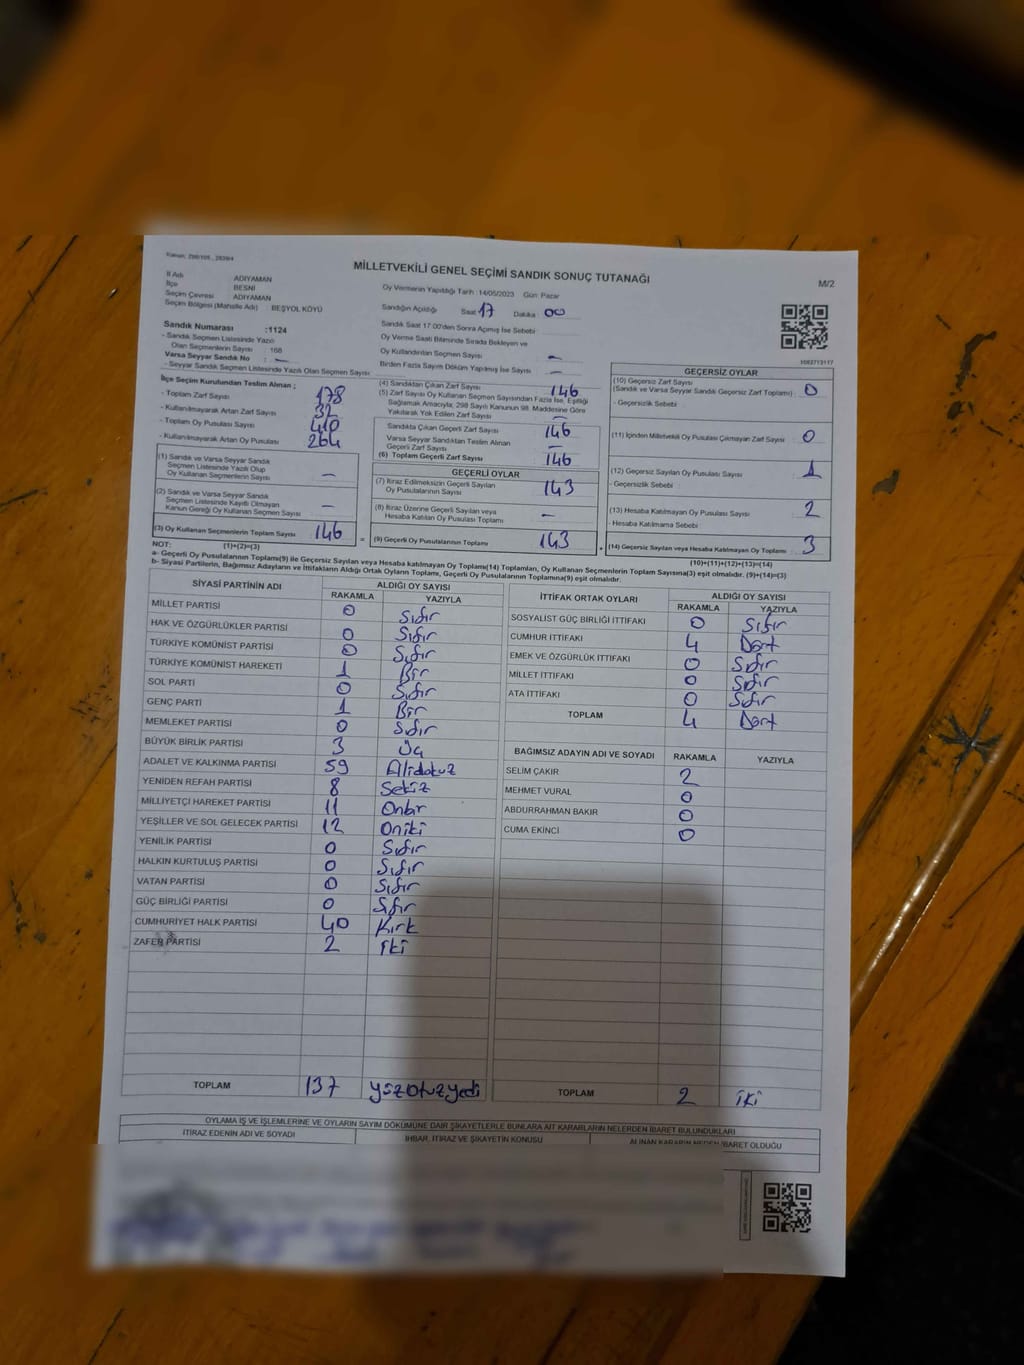 MİLLETVEKİLİ GENEL SEÇİMİ SANDIK SONUÇ TUTANAĞI
M/2
İl Adı : ADIYAMAN
İlçe : BESNİ
Seçim Çevresi : ADIYAMAN
Seçim Bölgesi (Mahalle Adı) : BEŞYOL KÖYÜ
Oy Vermenin Yapıldığı Tarih : 14/05/2023 Gün: Pazar
Sandığın Açıldığı Saat 17 Dakika 00
Sandık Saat 17:00'den Sonra Açılmış İse Sebebi
Oy Verme Saati Bitiminde Sırada Bekleyen ve
Oy Kullandırılan Seçmen Sayısı —
Birden Fazla Sayım Döküm Yapılmış İse Sayısı —
Sandık Numarası :1124
- Sandık Seçmen Listesinde Yazılı
Olan Seçmenlerin Sayısı : 168
Varsa Seyyar Sandık No : —
- Seyyar Sandık Seçmen Listesinde Yazılı Olan Seçmen Sayısı
İlçe Seçim Kurulundan Teslim Alınan ;
- Toplam Zarf Sayısı 178
- Kullanılmayarak Artan Zarf Sayısı 32
- Toplam Oy Pusulası Sayısı 410
- Kullanılmayarak Artan Oy Pusulası 264
(1) Sandık ve Varsa Seyyar Sandık
Seçmen Listesinde Yazılı Olup
Oy Kullanan Seçmenlerin Sayısı —
(2) Sandık ve Varsa Seyyar Sandık
Seçmen Listesinde Kayıtlı Olmayan
Kanun Gereği Oy Kullanan Seçmen Sayısı —
(3) Oy Kullanan Seçmenlerin Toplam Sayısı 146
(1)+(2)=(3)
(4) Sandıktan Çıkan Zarf Sayısı 146
(5) Zarf Sayısı Oy Kullanan Seçmen Sayısından Fazla İse, Eşitliği
Sağlamak Amacıyla; 298 Sayılı Kanunun 98. Maddesine Göre
Yakılarak Yok Edilen Zarf Sayısı —
Sandıkta Çıkan Geçerli Zarf Sayısı 146
Varsa Seyyar Sandıktan Teslim Alınan
Geçerli Zarf Sayısı —
(6) Toplam Geçerli Zarf Sayısı 146
GEÇERLİ OYLAR
(7) İtiraz Edilmeksizin Geçerli Sayılan
Oy Pusulalarının Sayısı 143
(8) İtiraz Üzerine Geçerli Sayılan veya
Hesaba Katılan Oy Pusulası Toplamı —
(9) Geçerli Oy Pusulalarının Toplamı 143
GEÇERSİZ OYLAR
(10) Geçersiz Zarf Sayısı
(Sandık ve Varsa Seyyar Sandık Geçersiz Zarf Toplamı) : 0
- Geçersizlik Sebebi
(11) İçinden Milletvekili Oy Pusulası Çıkmayan Zarf Sayısı : 0
(12) Geçersiz Sayılan Oy Pusulası Sayısı : 1
- Geçersizlik Sebebi :
(13) Hesaba Katılmayan Oy Pusulası Sayısı : 2
- Hesaba Katılmama Sebebi :
(14) Geçersiz Sayılan veya Hesaba Katılmayan Oy Toplamı : 3
(10)+(11)+(12)+(13)=(14)
NOT:
a- Geçerli Oy Pusulalarının Toplamı(9) ile Geçersiz Sayılan veya Hesaba Katılmayan Oy Pusulası Toplamı(14) Toplamları, Oy Kullanan Seçmenlerin Toplam Sayısına(3) eşit olmalıdır. (9)+(14)=(3)
b- Siyasi Partilerin, Bağımsız Adayların ve İttifakların Aldığı Ortak Oyların Toplamı, Geçerli Oy Pusulalarının Toplamına(9) eşit olmalıdır.
SİYASİ PARTİNİN ADI ALDIĞI OY SAYISI
RAKAMLA YAZIYLA
MİLLET PARTİSİ 0 Sıfır
HAK VE ÖZGÜRLÜKLER PARTİSİ 0 Sıfır
TÜRKİYE KOMÜNİST PARTİSİ 0 Sıfır
TÜRKİYE KOMÜNİST HAREKETİ 1 Bir
SOL PARTİ 0 Sıfır
GENÇ PARTİ 1 Bir
MEMLEKET PARTİSİ 0 Sıfır
BÜYÜK BİRLİK PARTİSİ 3 Üç
ADALET VE KALKINMA PARTİSİ 59 Alidokuz
YENİDEN REFAH PARTİSİ 8 Sekiz
MİLLİYETÇİ HAREKET PARTİSİ 11 Onbir
YEŞİLLER VE SOL GELECEK PARTİSİ 12 Oniki
YENİLİK PARTİSİ 0 Sıfır
HALKIN KURTULUŞ PARTİSİ 0 Sıfır
VATAN PARTİSİ 0 Sıfır
GÜÇ BİRLİĞİ PARTİSİ 0 Sıfır
CUMHURİYET HALK PARTİSİ 40 Kırk
ZAFER PARTİSİ 2 iki
TOPLAM 137 yüzotuzyedi
İTTİFAK ORTAK OYLARI ALDIĞI OY SAYISI
RAKAMLA YAZIYLA
SOSYALİST GÜÇ BİRLİĞİ İTTİFAKI 0 Sıfır
CUMHUR İTTİFAKI 4 Dört
EMEK VE ÖZGÜRLÜK İTTİFAKI 0 Sıfır
MİLLET İTTİFAKI 0 Sıfır
ATA İTTİFAKI 0 Sıfır
TOPLAM 4 Dört
BAĞIMSIZ ADAYIN ADI VE SOYADI RAKAMLA YAZIYLA
SELİM ÇAKIR 2
MEHMET VURAL 0
ABDURRAHMAN BAKIR 0
CUMA EKİNCİ 0
TOPLAM 2 iki
OYLAMA İŞ VE İŞLEMLERİNE VE OYLARIN SAYIM DÖKÜMÜNE DAİR ŞİKAYETLERLE BUNLARA AİT KARARLARIN NELERDEN İBARET BULUNDUKLARI
İTİRAZ EDENİN ADI VE SOYADI İHBAR, İTİRAZ VE ŞİKAYETİN KONUSU ALINAN KARARIN NEDEN İBARET OLDUĞU